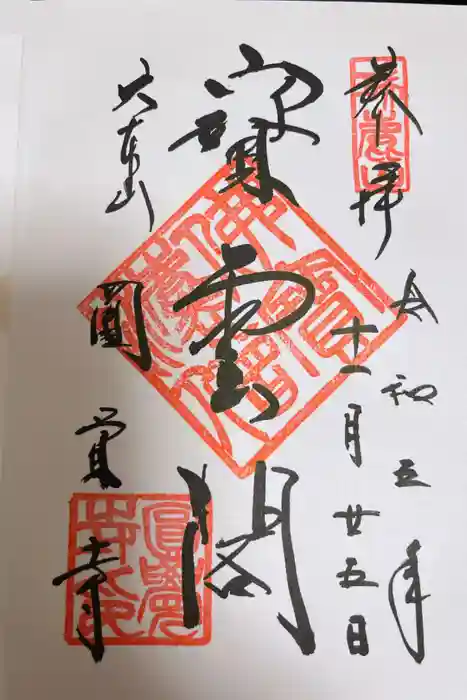 奉拝
令和五年
十一月廿五日
寶雲閣
大本山
圓覚寺